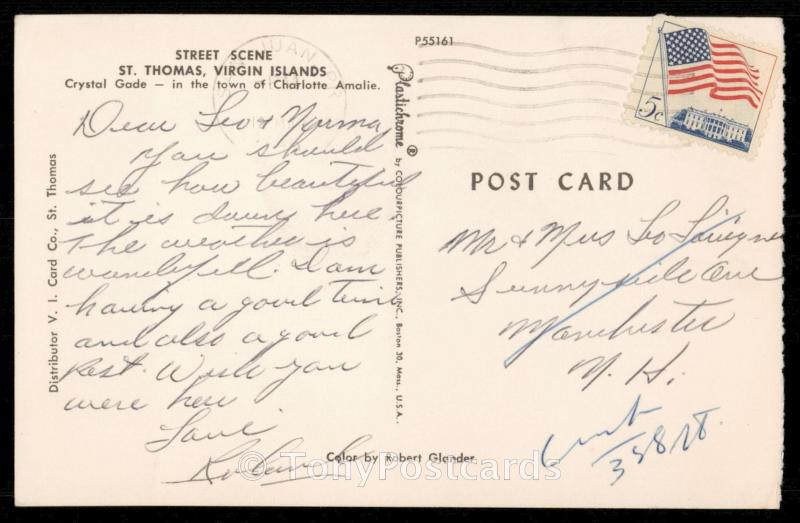 STREET SCENE
ST. THOMAS, VIRGIN ISLANDS
Crystal Gade — in the town of Charlotte Amalie.
Dear Leo & Norma
You should
see how beautiful
it is down here
The weather is
wonderfull. I am
having a good time
and also a good
Rest. Wish you
were here
Love
Distributor V. I. Card Co., St. Thomas
P55161
Plastichrome ® by COLOURPICTURE PUBLISHERS, INC., Boston 30, Mass., U.S.A.
JUAN
5c
POST CARD
Mr & Mrs Leo
Sunnyside Ave
Manchester
N. H.
Color by Robert Glander
© TonyPostcards